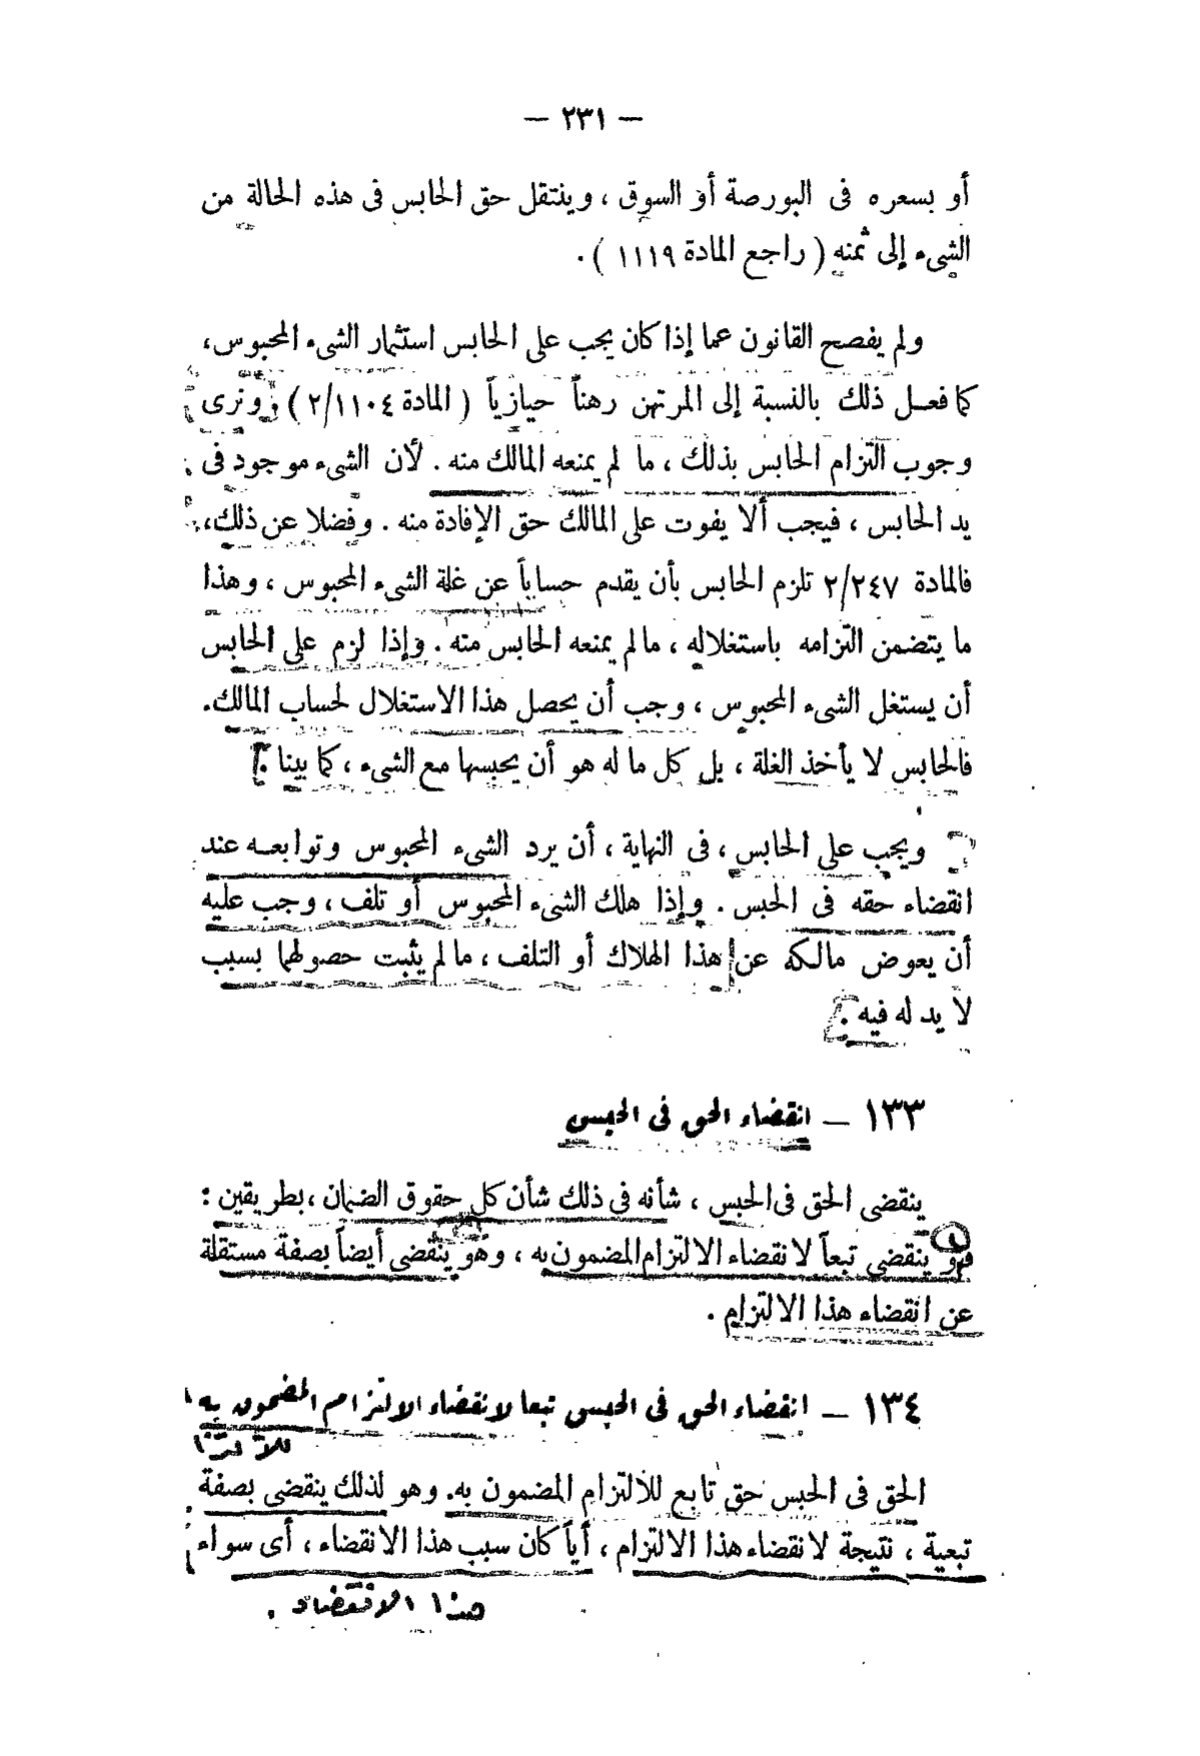 — ٢٣١ —
أو بسعره فى البورصة أو السوق ، وينتقل حق الحابس فى هذه الحالة من
الشىء إلى ثمنه ( راجع المادة ١١١٩ ) .
ولم يفصح القانون عما إذا كان يجب على الحابس استثمار الشىء المحبوس ،
كما فعل ذلك بالنسبة إلى المرتهن رهناً حيازياً ( المادة ٢/١١٠٤ ) ونرى
وجوب التزام الحابس بذلك ، ما لم يمنعه المالك منه . لأن الشىء موجود فى
يد الحابس ، فيجب ألا يفوت على المالك حق الإفادة منه . وفضلا عن ذلك ،
فالمادة ٢/٢٤٧ تلزم الحابس بأن يقدم حساباً عن غلة الشىء المحبوس ، وهذا
ما يتضمن التزامه باستغلاله ، ما لم يمنعه الحابس منه . وإذا لزم على الحابس
أن يستغل الشىء المحبوس ، وجب أن يحصل هذا الاستغلال لحساب المالك .
فالحابس لا يأخذ الغلة ، بل كل ما له هو أن يحبسها مع الشىء ، كما بينا .
ويجب على الحابس ، فى النهاية ، أن يرد الشىء المحبوس وتوابعه عند
انقضاء حقه فى الحبس . وإذا هلك الشىء المحبوس أو تلف ، وجب عليه
أن يعوض مالكه عن هذا الهلاك أو التلف ، ما لم يثبت حصولهما بسبب
لا يد له فيه .
١٣٣ — انقضاء الحق فى الحبس
ينقضى الحق فى الحبس ، شأنه فى ذلك شأن كل حقوق الضمان ، بطريقين :
فهو ينقضى تبعاً لانقضاء الالتزام المضمون به ، وهو ينقضى أيضاً بصفة مستقلة
عن انقضاء هذا الالتزام .
١٣٤ — انقضاء الحق فى الحبس تبعا لانقضاء الالتزام المضمون به
الحق فى الحبس حق تابع للالتزام المضمون به . وهو لذلك ينقضى بصفة
تبعية ، نتيجة لانقضاء هذا الالتزام ، أياً كان سبب هذا الانقضاء ، أى سواء
هذا الانقضاء .